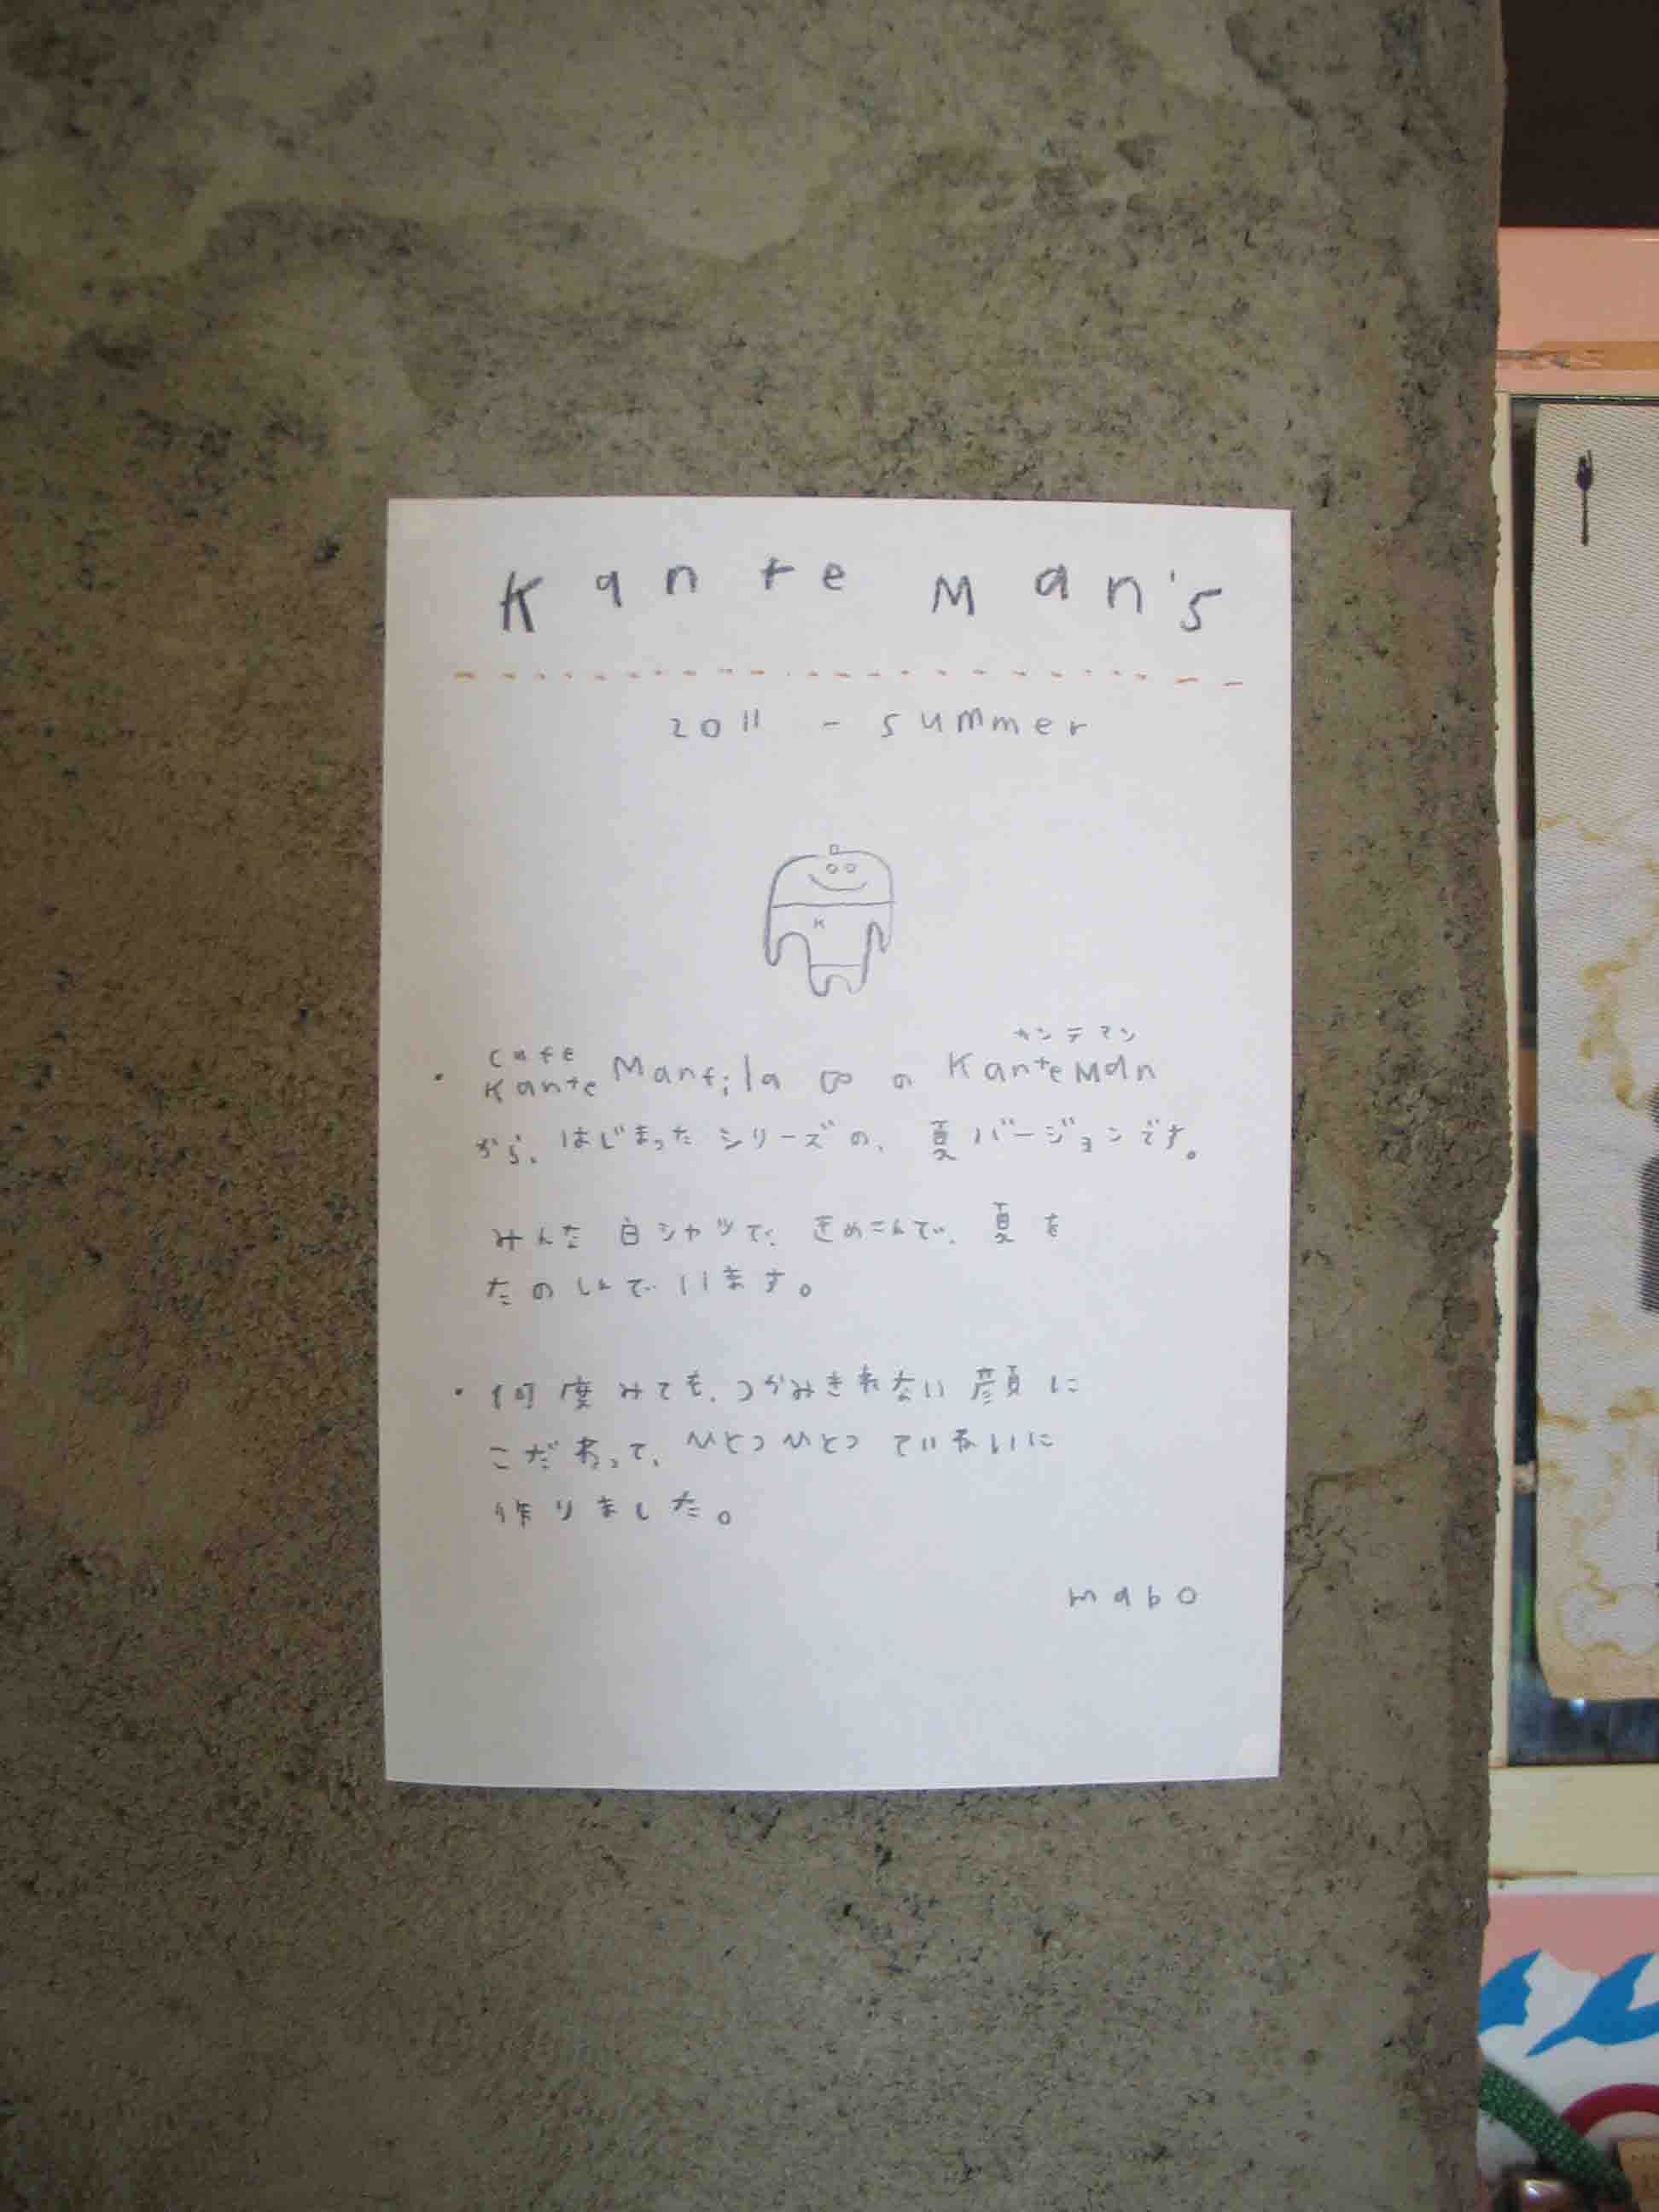 Kante Man's
2011 - summer
K
cafe
カンテマン
Kante Manfila ∞ の Kante Man
から、はじまったシリーズの、夏バージョンです。
みんな白シャツで、きめこんで、夏を
たのしんでいます。
・何度みても、つかみきれない顔に
こだわって、ひとつひとつていねいに
作りました。
mabo